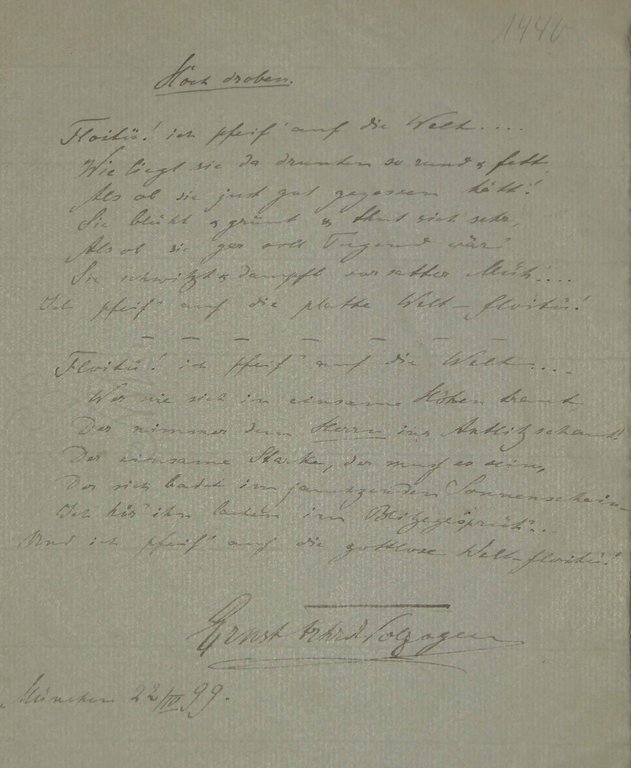 144b
Hoch droben.
Floitü! ich pfeif' auf die Welt....
Wie liegt sie da drunten so rund & fett
Als ob sie just gut gegessen hätt'!
Sie blüht & grünt & thut sich sehr,
Als ob sie gar voll Tugend wär'
Sie schwitzt & dampft vor satter Müh'....
Ich pfeif' auf die platte Welt – floitü!
– – – – – – –
Floitü! ich pfeif' auf die Welt....
Wer nie sich in einsame Höhen traut
Der nimmer dem Herrn ins Antlitz schaut!
Der einsame Starke, der muss es sein,
Der sich badet im jauchzenden Sonnenschein –
Ich hör' ihn lachen im Blitzgesprüh'...
Und ich pfeif' auf die gottlose Welt – floitü!
Ernst Frhr. v. Wolzogen
München 22/IV 99.